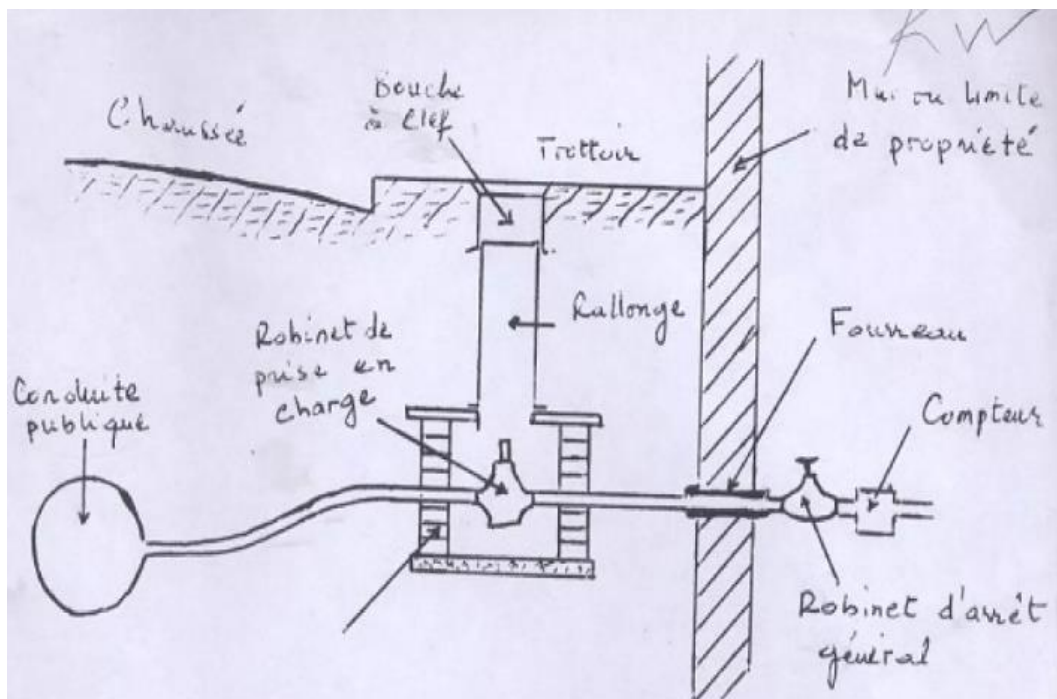 KW
Bouche
à Clef
Chaussée
Trottoir
Mur ou limite
de propriété
Rallonge
Robinet de
prise en
charge
Fourreau
Conduite
publique
Compteur
Robinet d'arrêt
général